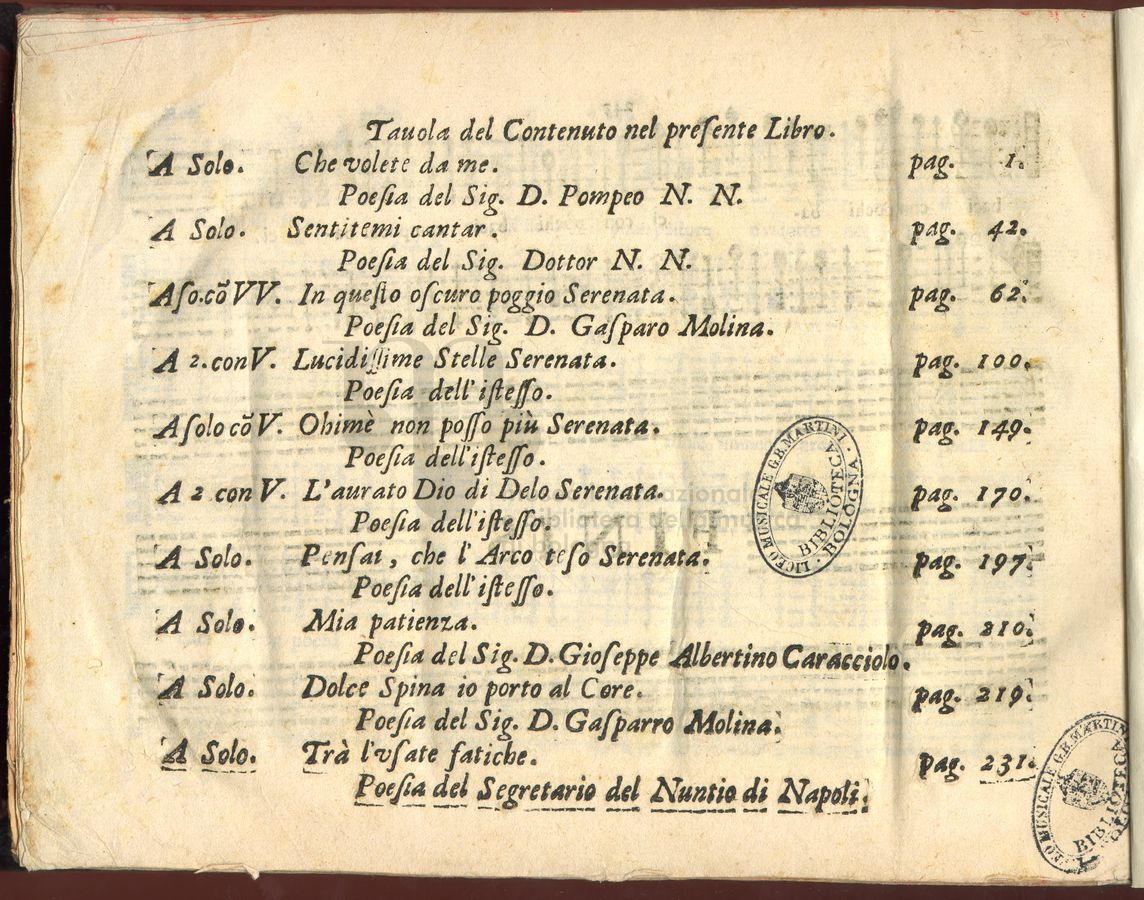 Tauola del Contenuto nel preſente Libro.
A Solo. Che volete da me. pag. 1.
Poeſia del Sig. D. Pompeo N. N.
A Solo. Sentitemi cantar. pag. 42.
Poeſia del Sig. Dottor N. N.
A ſo. cõ VV. In queſto oſcuro poggio Serenata. pag. 62.
Poeſia del Sig. D. Gaſparo Molina.
A 2. con V. Lucidiſſime Stelle Serenata. pag. 100.
Poeſia dell'iſteſſo.
A ſolo cõ V. Ohimè non poſſo più Serenata. pag. 149.
Poeſia dell'iſteſſo.
A 2 con V. L'aurato Dio di Delo Serenata. pag. 170.
Poeſia dell'iſteſſo.
A Solo. Penſai, che l'Arco teſo Serenata. pag. 197.
Poeſia dell'iſteſſo.
A Solo. Mia patienza. pag. 210.
Poeſia del Sig. D. Gioſeppe Albertino Caracciolo.
A Solo. Dolce Spina io porto al Core. pag. 219.
Poeſia del Sig. D. Gaſparro Molina.
A Solo. Trà l'vſate fatiche. pag. 231.
Poeſia del Segretario del Nuntio di Napoli.
LICEO MUSICALE G.B. MARTINI · BOLOGNA ·
BIBLIOTECA
LICEO MUSICALE G.B. MARTINI
BIBLIOTECA